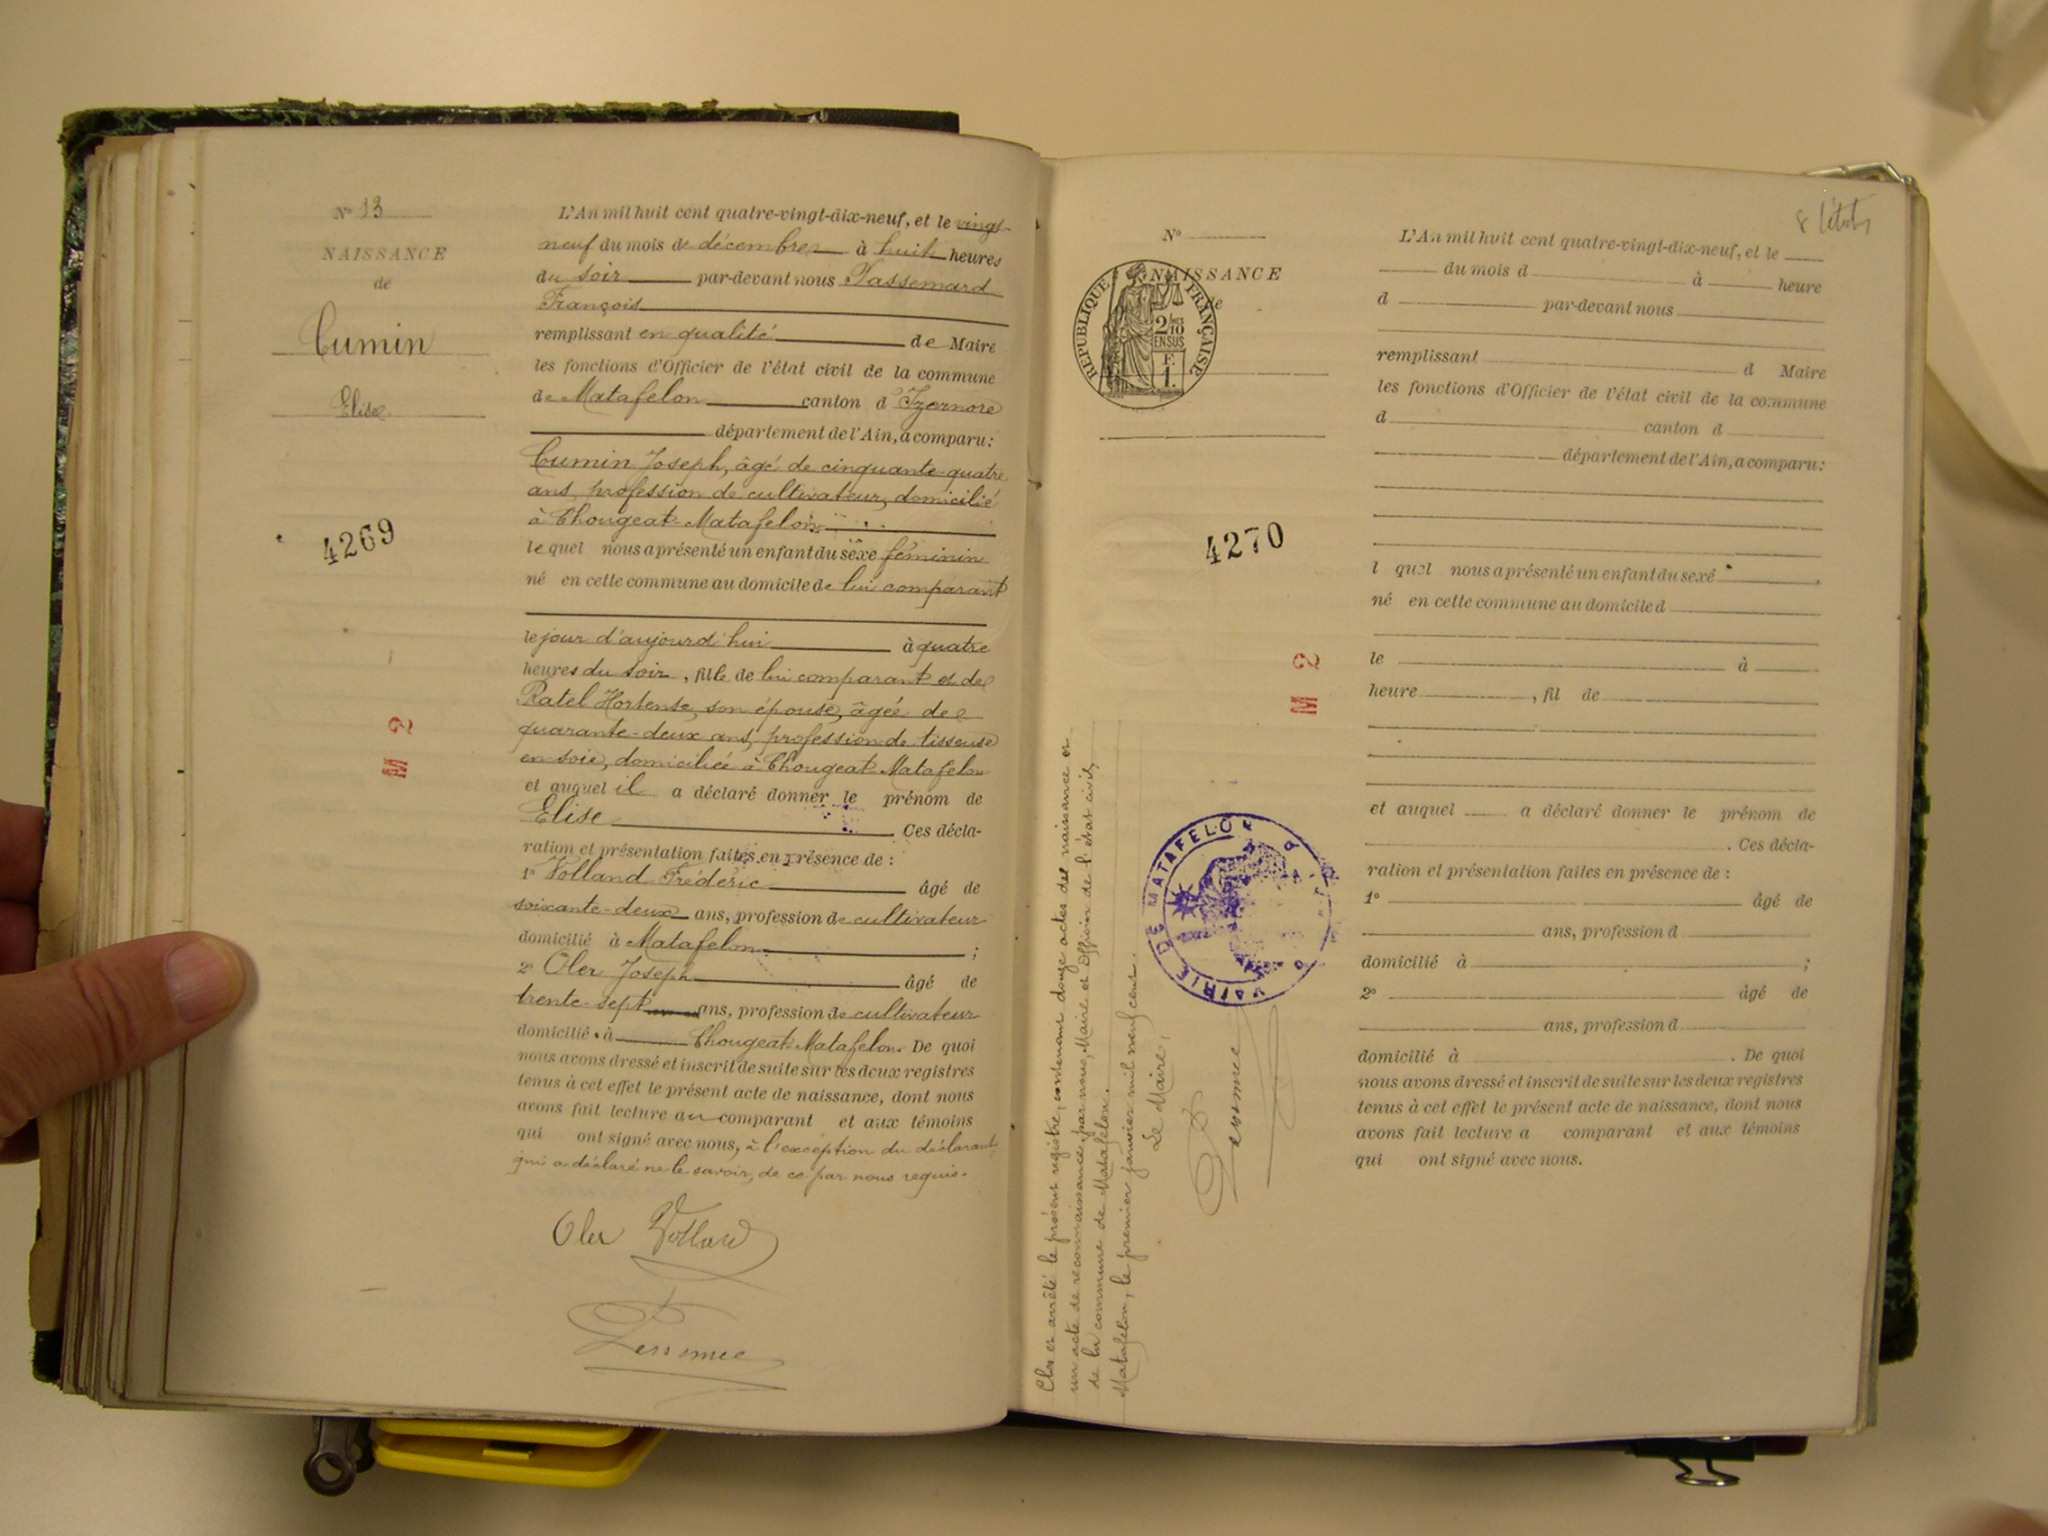 N° 13
NAISSANCE
de
Cumin
Elise
4269
M 2
L'An mil huit cent quatre-vingt-dix-neuf, et le vingt-
neuf du mois de décembre à huit heures
du soir par-devant nous
François
remplissant en qualité de Maire
les fonctions d'Officier de l'état civil de la commune
de Matafelon canton d'Izernore
département de l'Ain, a comparu:
Cumin Joseph, âgé de cinquante-quatre
ans, profession de cultivateur, domicilié
à Chougeat-Matafelon
lequel nous a présenté un enfant du sexe féminin
né en cette commune au domicile de lui comparant
le jour d'aujourd'hui à quatre
heures du soir, fille de lui comparant et de
Ratel Hortense, son épouse, âgée de
quarante-deux ans, profession de tisseuse
en soie, domiciliée à Chougeat-Matafelon
et auquel il a déclaré donner le prénom de
Elise Ces décla-
ration et présentation faites en présence de :
1° Volland Frédéric âgé de
soixante-deux ans, profession de cultivateur
domicilié à Matafelon ;
2° Oler Joseph âgé de
trente-sept ans, profession de cultivateur
domicilié à Chougeat-Matafelon. De quoi
nous avons dressé et inscrit de suite sur les deux registres
tenus à cet effet le présent acte de naissance, dont nous
avons fait lecture au comparant et aux témoins
qui ont signé avec nous, à l'exception du déclarant
qui a déclaré ne le savoir, de ce par nous requis.
Oler Volland
8
N°
NAISSANCE
de
REPUBLIQUE FRANÇAISE
2/10 EN SUS
F. 1.
4270
M 2
MAIRIE DE MATAFELON
Clos et arrêté le présent registre, contenant douze actes de naissance et
un acte de reconnaissance, par nous, Maire et Officier de l'état civil,
de la commune de Matafelon.
Matafelon, le premier janvier mil neuf cent.
Le Maire,
L'An mil huit cent quatre-vingt-dix-neuf, et le
du mois d à heure
d par-devant nous
remplissant d Maire
les fonctions d'Officier de l'état civil de la commune
d canton d
département de l'Ain, a comparu:
l quel nous a présenté un enfant du sexe
né en cette commune au domicile d
le à
heure , fil de
et auquel a déclaré donner le prénom de
. Ces décla-
ration et présentation faites en présence de :
1° âgé de
ans, profession d
domicilié à ;
2° âgé de
ans, profession d
domicilié à . De quoi
nous avons dressé et inscrit de suite sur les deux registres
tenus à cet effet le présent acte de naissance, dont nous
avons fait lecture a comparant et aux témoins
qui ont signé avec nous.